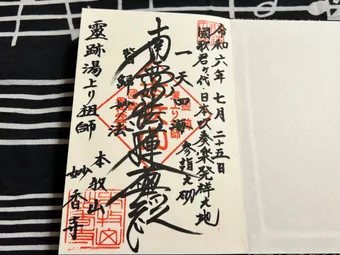 令和六年七月二十五日
国歌君が代・日本吹奏楽発祥之地
一天四海
皆歸妙法
参詣之砌
南無妙法蓮華経
靈跡湯上り祖師
本牧山
妙香寺